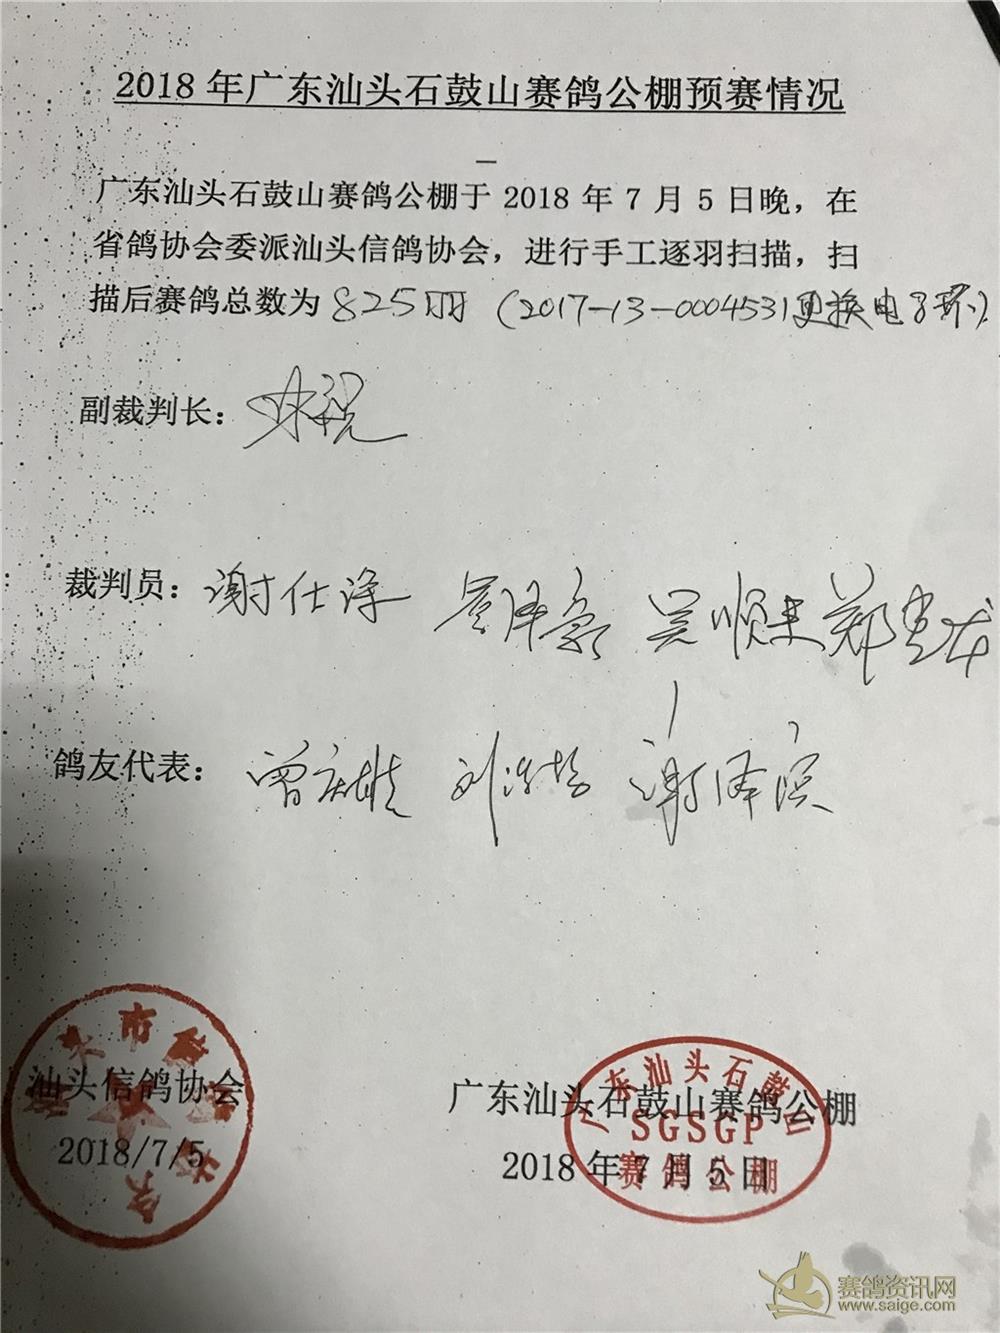 2018年广东汕头石鼓山赛鸽公棚预赛情况
广东汕头石鼓山赛鸽公棚于 2018 年 7 月 5 日晚，在
省鸽协会委派汕头信鸽协会，进行手工逐羽扫描，扫
描后赛鸽总数为 825羽 (2017-13-0004531更换电子环)
副裁判长：
裁判员：谢仕
鸽友代表：曾庆雄 刘 谢泽滨
汕头信鸽协会
2018/7/5
广东汕头石鼓山赛鸽公棚
2018 年 7 月 5 日
广东汕头石鼓山
SGSGP
赛鸽公棚
赛鸽资讯网
www.saige.com